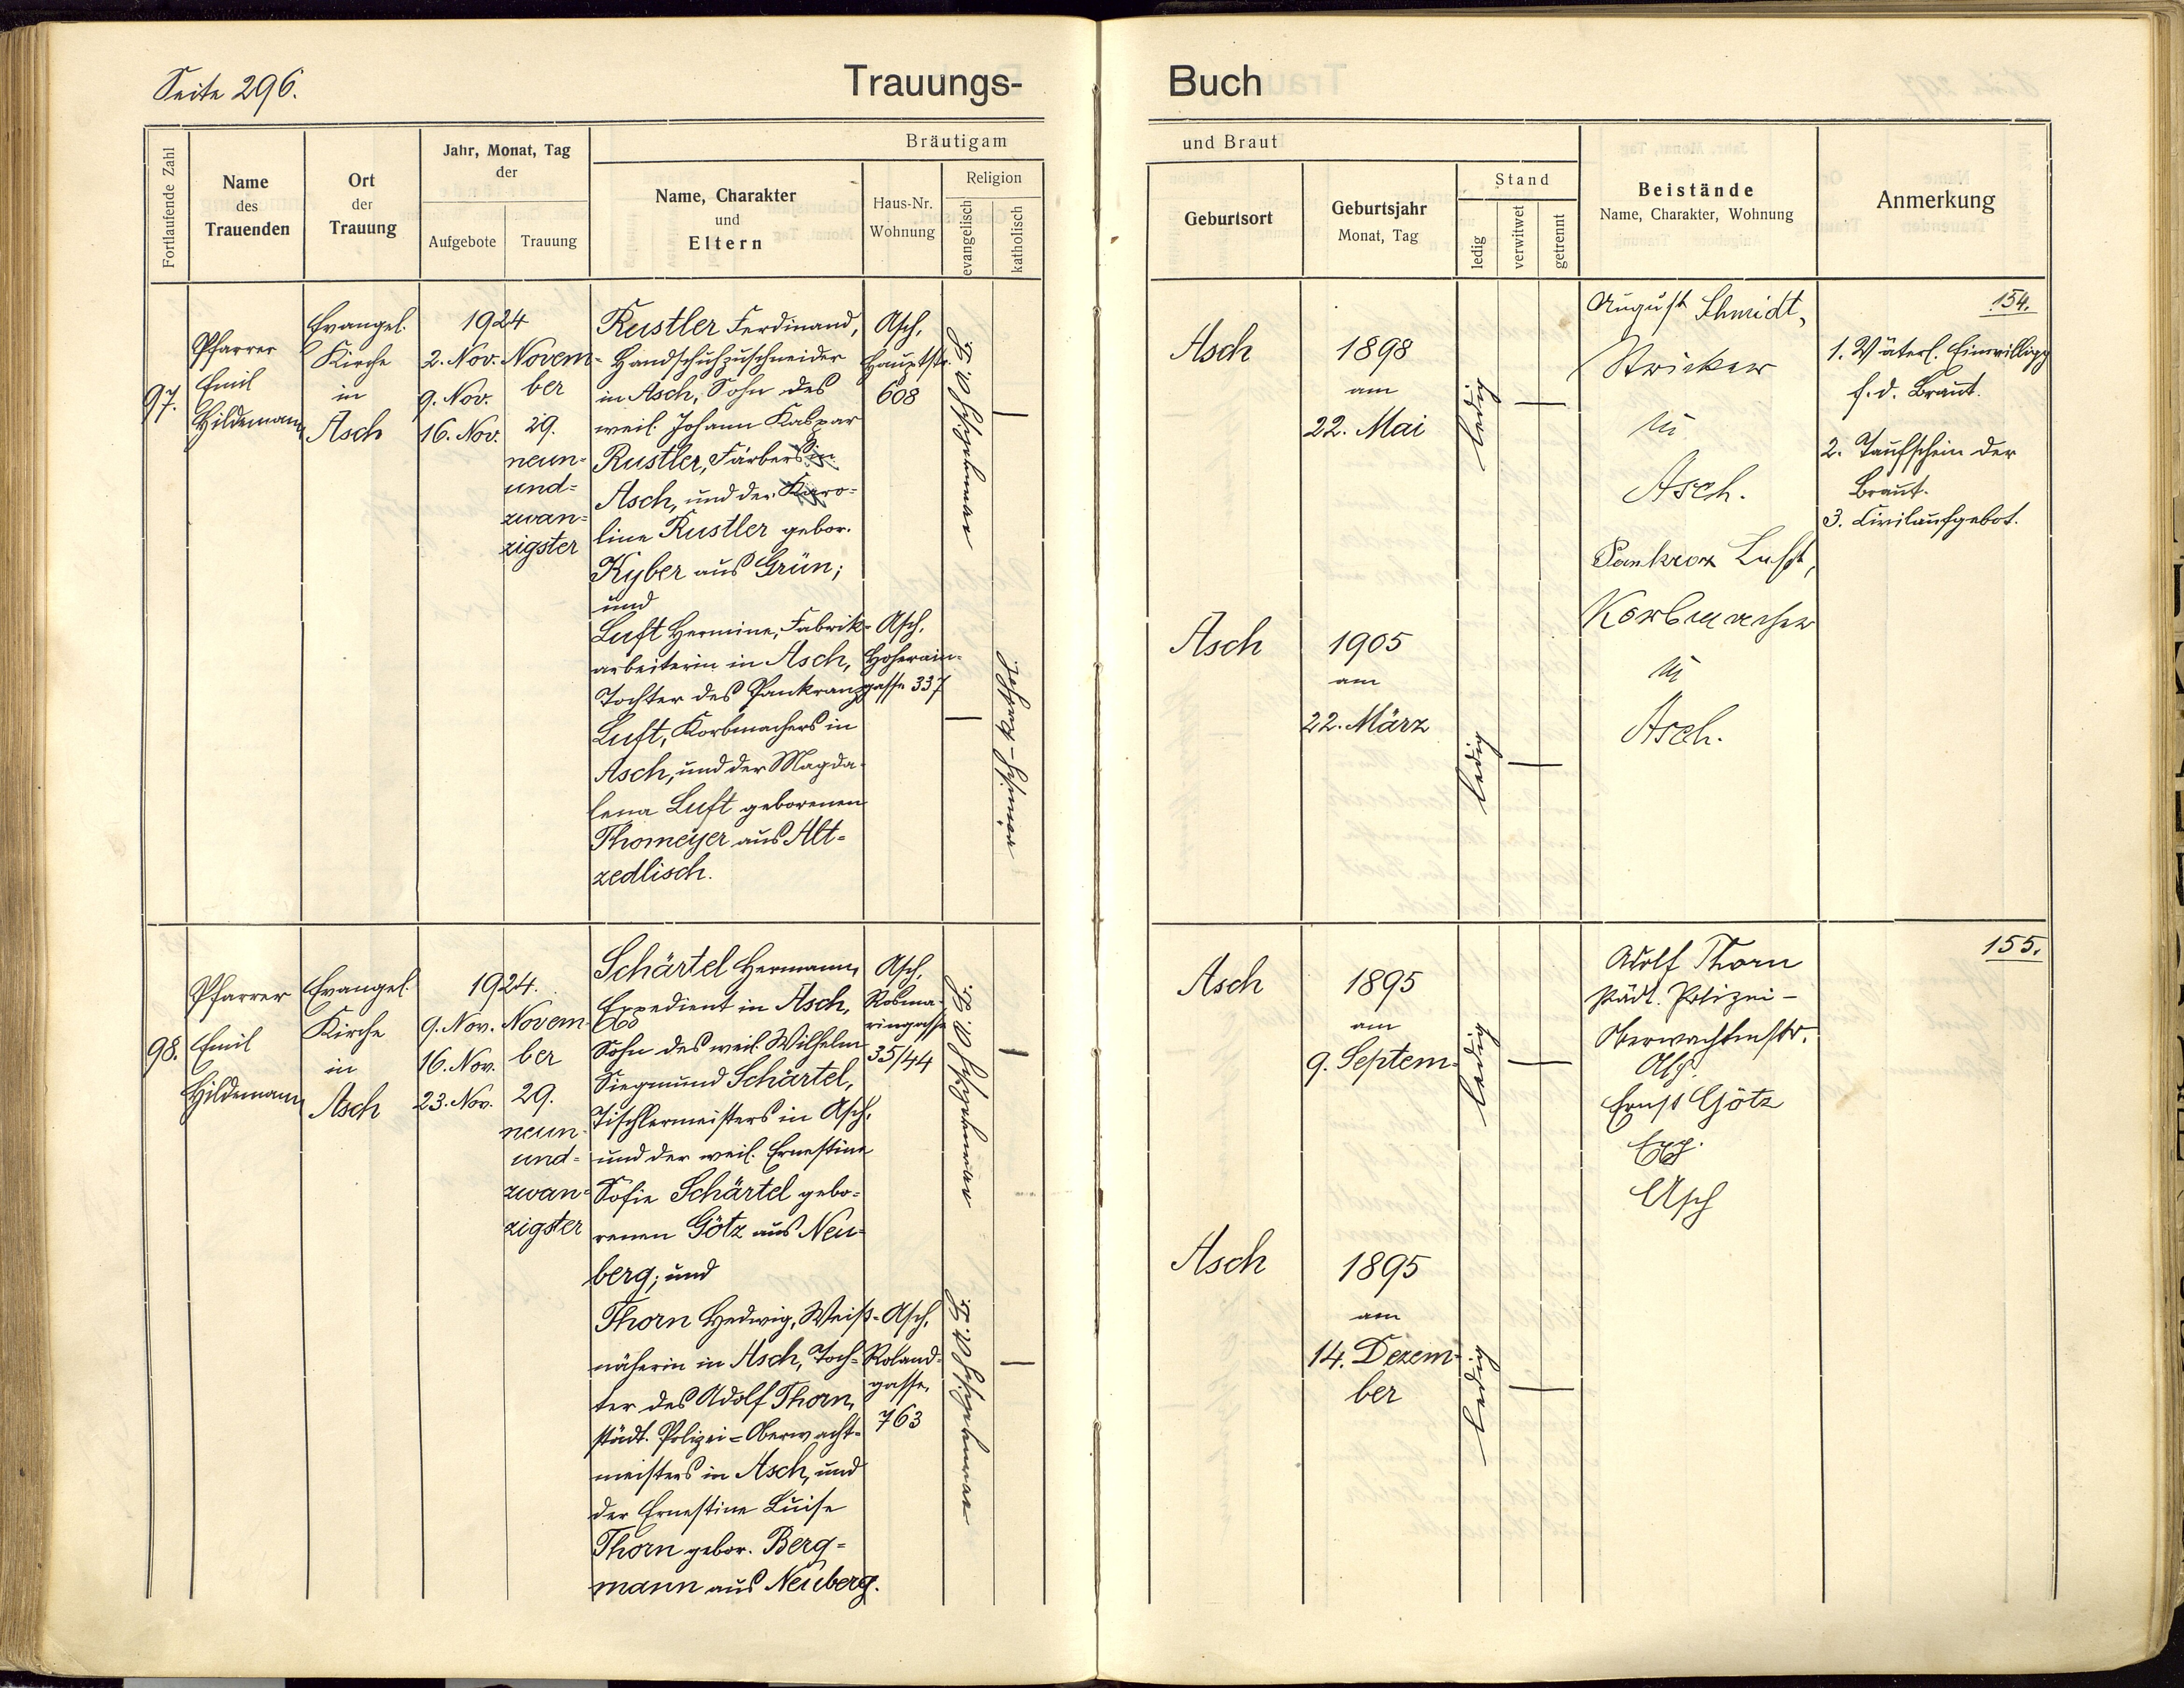 Seite 296.
Trauungs-
Buch
Fortlaufende Zahl
Name
des
Trauenden
Ort
der
Trauung
Jahr, Monat, Tag
der
Aufgebote
Trauung
Bräutigam
Name, Charakter
und
Eltern
Haus-Nr.
Wohnung
Religion
evangelisch
katholisch
und Braut
Geburtsort
Geburtsjahr
Monat, Tag
Stand
ledig
verwitwet
getrennt
Beistände
Name, Charakter, Wohnung
Anmerkung
97.
Pfarrer
Emil
Hildemann
Evangel.
Kirche
in
Asch
1924
2. Nov.
9. Nov.
16. Nov.
Novem-
ber
29.
neun-
und-
zwan-
zigster
Rustler Ferdinand,
Handschuhzuschneider
in Asch, Sohn des
weil. Johann Kaspar
Rustler, Färbers in
Asch, und der Karo-
line Rustler gebor.
Kyber aus Grün;
und
Luft Hermine, Fabrik-
arbeiterin in Asch,
Tochter des Pankranz
Luft, Korbmachers in
Asch, und der Magda-
lena Luft geborenen
Thomeyer aus Alt-
zedlisch.
Asch,
Hauptstr.
608
Asch,
Hoherain-
gasse 337
Asch
1898
am
22. Mai
ledig
Asch
1905
am
22. März
ledig
August Schmidt,
Stricker
in
Asch.
Pankraz Luft,
Korbmacher
in
Asch.
154.
1. Väterl. Einwilligg
f. d. Braut.
2. Taufschein der
Braut.
3. Civilaufgebot.
98.
Pfarrer
Emil
Hildemann
Evangel.
Kirche
in
Asch
1924.
9. Nov.
16. Nov.
23. Nov.
Novem-
ber
29.
neun-
und-
zwan-
zigster
Schärtel Hermann,
Expedient in Asch,
Sohn des weil. Wilhelm
Siegmund Schärtel,
Tischlermeisters in Asch,
und der weil. Ernestine
Sofie Schärtel gebo-
renen Götz aus Neu-
berg; und
Thorn Hedwig, Weiß-
näherin in Asch, Toch-
ter des Adolf Thorn,
städt. Polizei-Oberwacht-
meisters in Asch, und
der Ernestine Luise
Thorn gebor. Berg-
mann aus Neuberg.
Asch,
Rosma-
ringasse
35/44
Asch,
Roland-
gasse,
763
Asch
1895
am
9. Septem-
ledig
Asch
1895
am
14. Dezem-
ber
ledig
Adolf Thorn
städt. Polizei-
Oberwachtmstr.
Asch
Ernst Götz
Exp.
Asch
155.